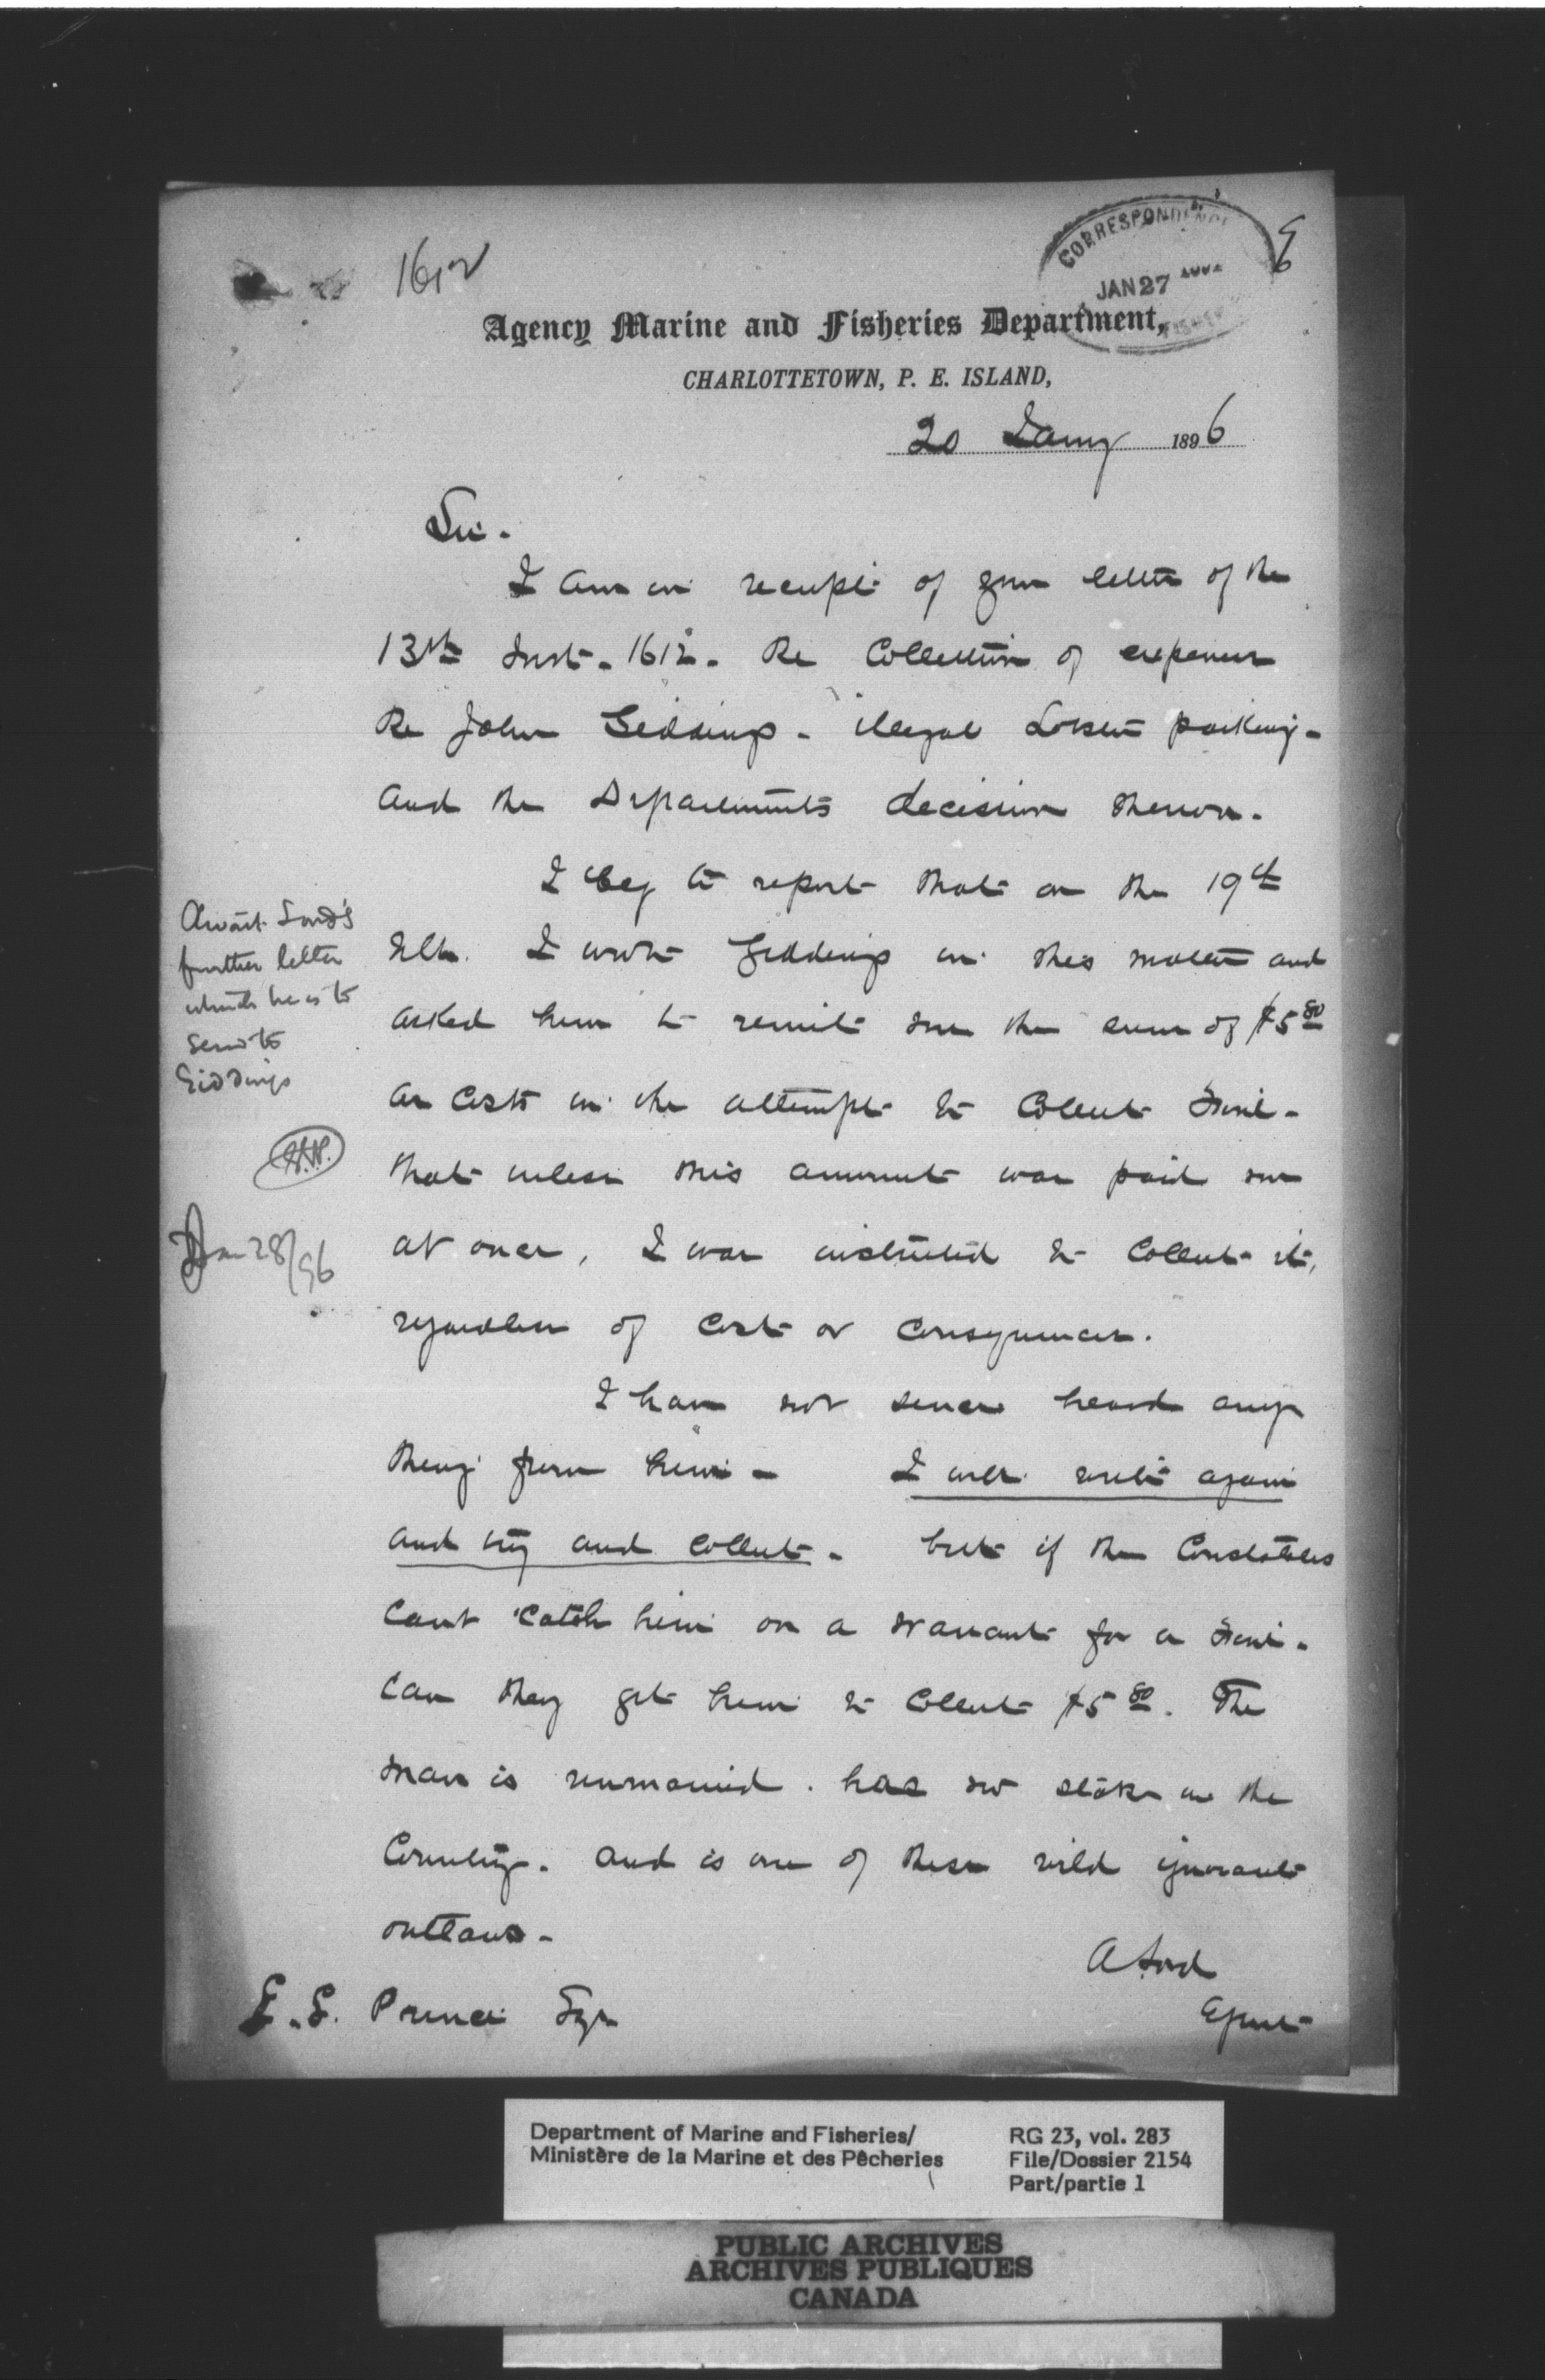 1612
CORRESPONDENCE
JAN 27
FISHER
Agency Marine and Fisheries Department,
CHARLOTTETOWN, P. E. ISLAND,
20 Jany 1896
Sir.
I am in receipt of your letter of the
13th Inst - 1612. Re Collection of expenses
Re John Giddings - illegal Lobster packing -
and the Departments decision thereon.
I beg to report that on the 19th
Ulto. I wrote Giddings in this matter and
asked him to remit me the sum of $5 80
as costs in the attempt to Collect Fine -
that unless this amount was paid me
at once, I was instructed to Collect it,
regardless of Cost or Consequences.
I have not since heard any
thing from him - I will write again
and try and Collect - but if the Constables
cant catch him on a warrant for a Fine.
Can they get him to Collect $5 80. The
man is unmarried. has no stake in the
Country. and is one of these wild ignorant
outlaws -
A Lord
Agent
E. E. Prince Esqr
Await Lord's
further letter
which he is to
send to
Giddings
Jan 28/96
Department of Marine and Fisheries/
Ministère de la Marine et des Pêcheries
RG 23, vol. 283
File/Dossier 2154
Part/partie 1
PUBLIC ARCHIVES
ARCHIVES PUBLIQUES
CANADA